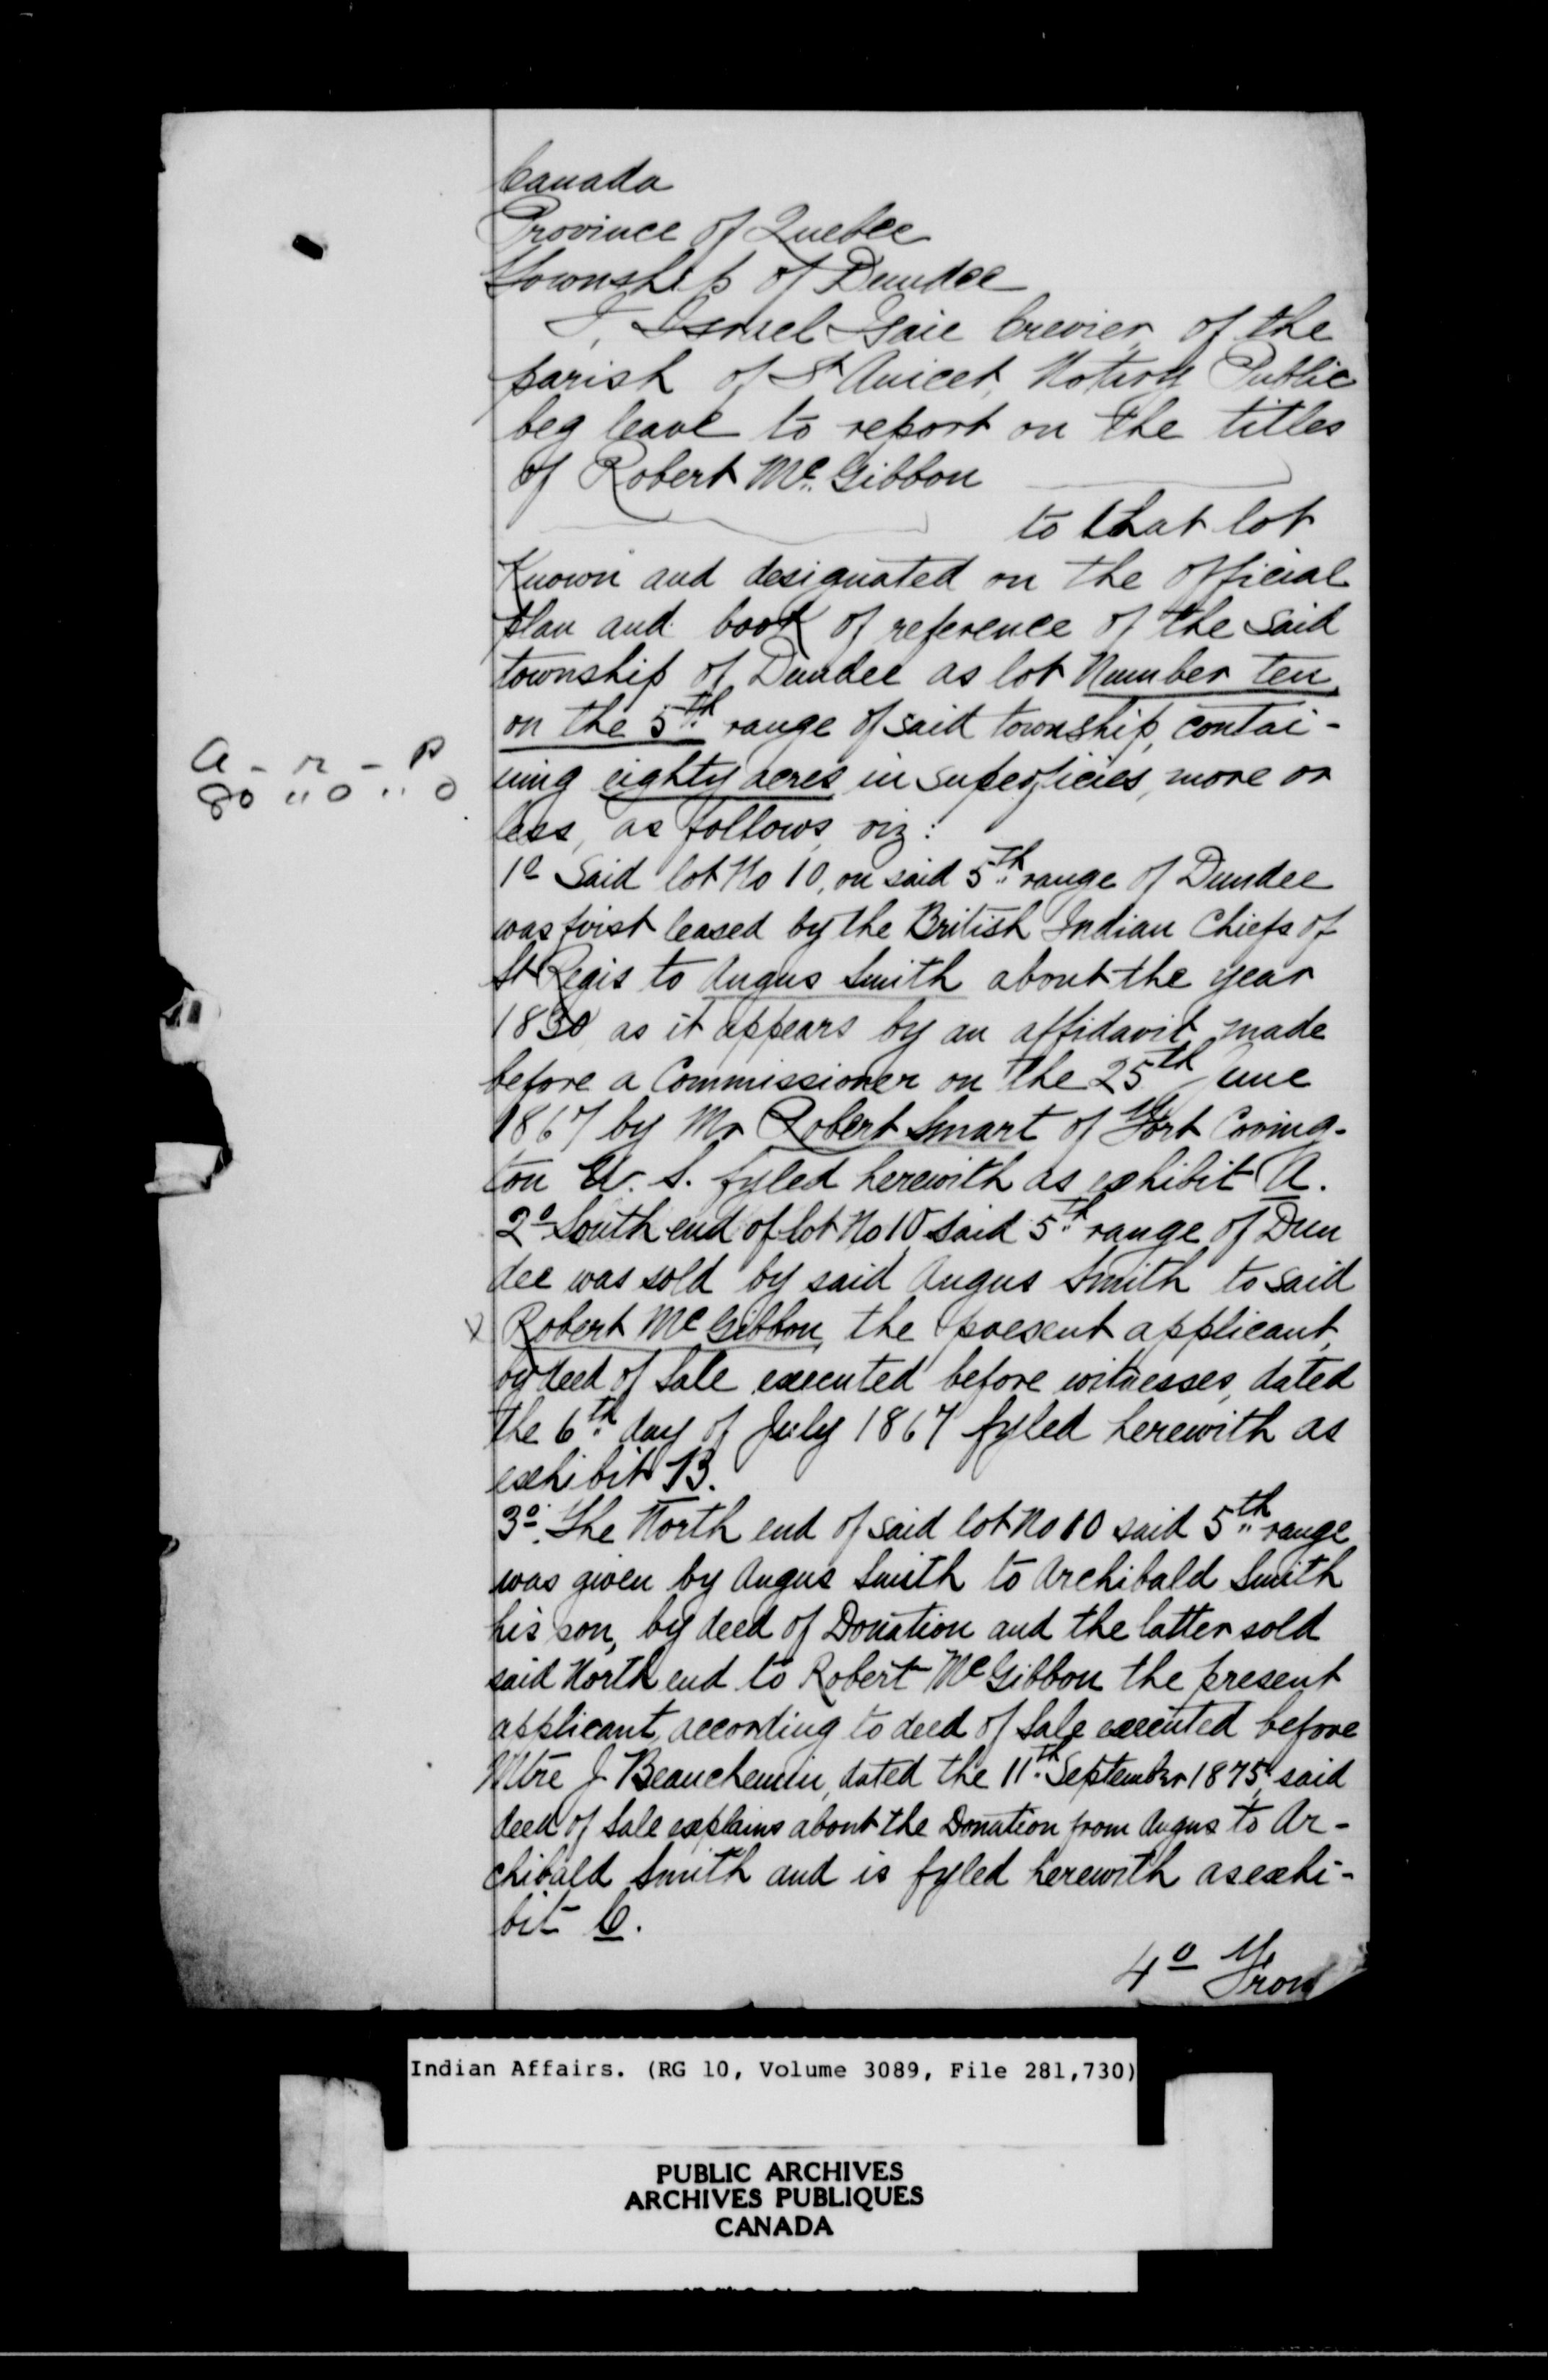 Canada
Province of Quebec
Township of Dundee
I, Israel Isaie Crevier, of the
parish of St Anicet, Notary Public
beg leave to report on the titles
of Robert McGibbon
to that lot
Known and designated on the official
plan and book of reference of the said
township of Dundee as lot Number ten
on the 5th range of said township, contai-
A - r - P
80 " 0 " 0
ning eighty acres in superficies, more or
less, as follows, viz:
1o Said lot No 10, on said 5th range of Dundee
was first leased by the British Indian Chiefs of
St Regis to Angus Smith about the year
1830, as it appears by an affidavit made
before a Commissioner on the 25th June
1867 by Mr Robert Smart of Fort Coving-
ton U. S. fyled herewith as exhibit A.
2o South end of lot No 10 said 5th range of Dun
dee was sold by said Angus Smith to said
x Robert McGibbon, the present applicant,
by deed of Sale executed before witnesses, dated
the 6th day of July 1867 fyled herewith as
exhibit B.
3o The North end of said lot No 10 said 5th range
was given by Angus Smith to Archibald Smith
his son, by deed of Donation and the latter sold
said North end to Robert McGibbon the present
applicant, according to deed of Sale executed before
Mtre J. Beauchemin, dated the 11th September 1875, said
deed of Sale explains about the Donation from Angus to Ar-
chibald Smith and is fyled herewith as exhi-
bit C.
4o From
Indian Affairs. (RG 10, Volume 3089, File 281,730)
PUBLIC ARCHIVES
ARCHIVES PUBLIQUES
CANADA